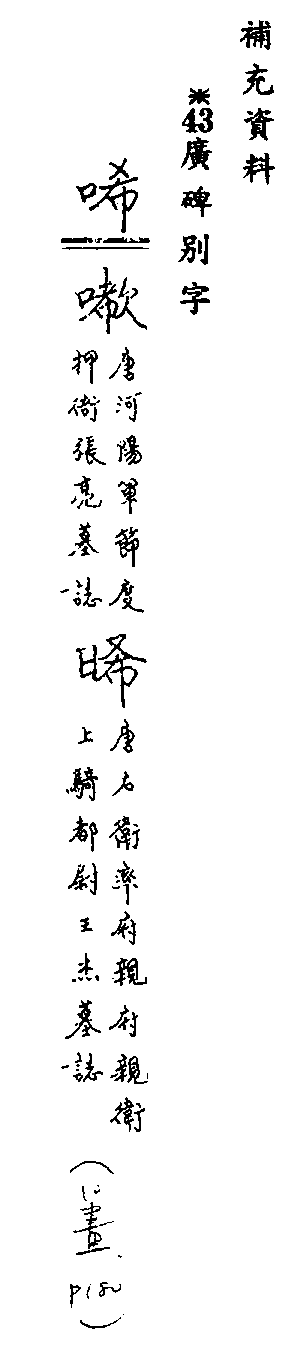 補充資料
※43廣碑別字
唏
唐河陽軍節度
押衙張亮墓誌
晞
唐右衛率府親府親衛
上騎都尉王杰墓誌
(10畫、P180)